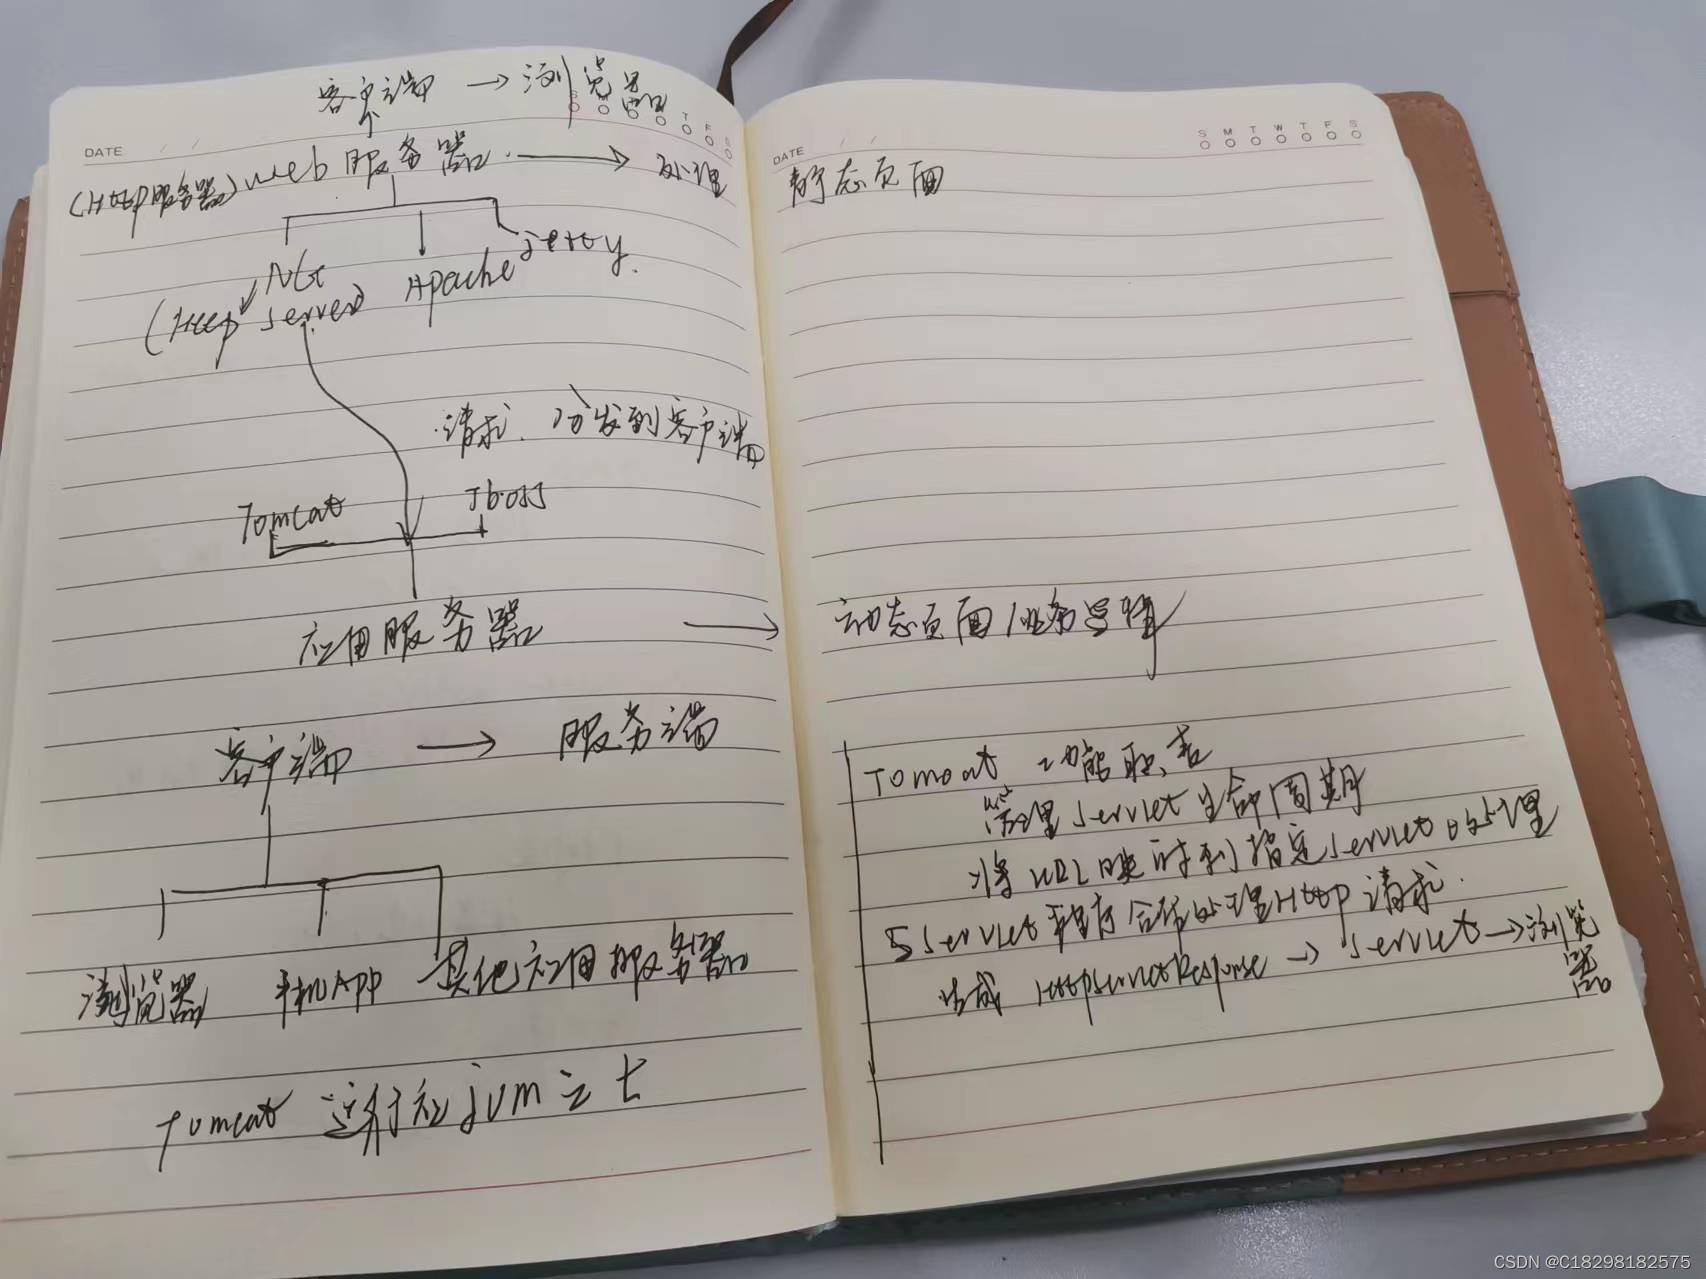 客户端 → 浏览器
DATE / /
S M T F S
(Http服务器) web 服务器 → 处理
NG Apache jetty
(Http server)
请求 分发到客户端
Tomcat Jboss
应用服务器 →
客户端 → 服务端
浏览器 手机App 其他应用服务器
Tomcat 运行在jvm之上
DATE / /
S M T W T F S
静态页面
动态页面/业务逻辑
Tomcat 功能职责
管理servlet生命周期
将URL映射到指定servlet的处理
与servlet程序合作处理Http请求.
生成 HttpservletResponse → servlet → 浏览器
CSDN @C18298182575